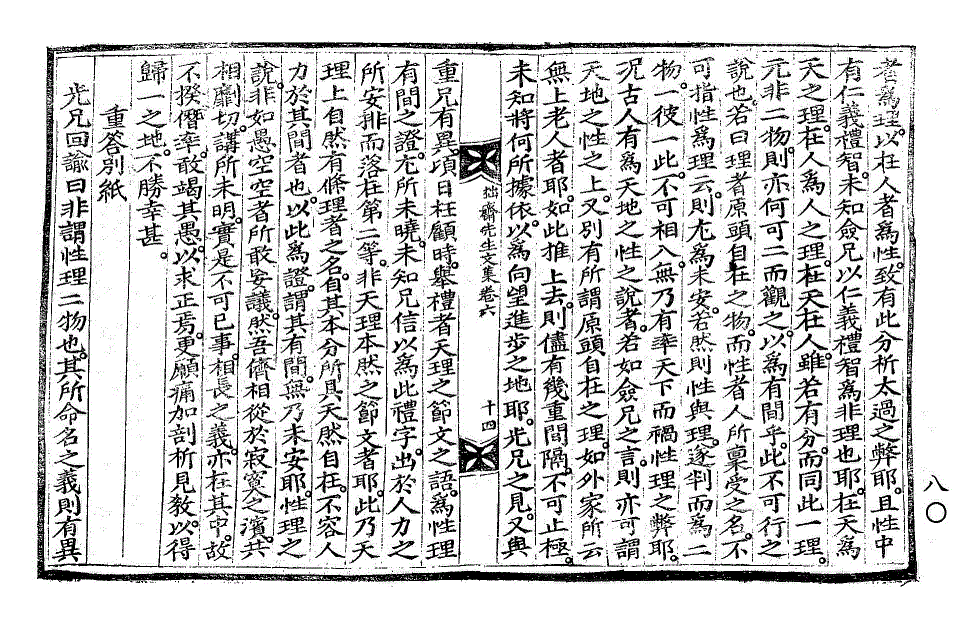 者爲理。以在人者爲性。致有此分析太過之弊耶。且性中
有仁義禮智。未知僉兄以仁義禮智爲非理也耶。在天爲
天之理。在人爲人之理。在天在人。雖若有分。而同此一理。
元非二物。則亦何可二而觀之。以爲有間乎。此不可行之
說也。若曰理者原頭自在之物。而性者人所稟受之名。不
可指性爲理云。則尤爲未安。若然則性與理。遂判而爲二
物。一彼一此。不可相入。無乃有率天下而禍性理之弊耶。
况古人有爲天地之性之說者。若如僉兄之言。則亦可謂
天地之性之上。又別有所謂原頭自在之理。如外家所云
無上老人者耶。如此推上去。則儘有幾重間隔。不可止極。
未知將何所據依。以爲向望進步之地耶。光兄之見。又與
拙齋先生文集卷六
十四
重兄有異。項日枉顧時。擧禮者天理之節文之語。爲性理
有間之證。尤所未曉。未知兄信以爲此禮字。出於人力之
所安排。而落在第二等。非天理本然之節文者耶。此乃天
理上自然有條理者之名。自其本分所具。天然自在。不容人
力於其間者也。以此爲證。謂其有間。無乃未安耶。性理之
說。非如愚空空者所敢妄議。然吾儕相從於寂寞之濱。共
相劘切。講所未明。實是不可已事。相長之義。亦在其中。故
不揆僭率。敢竭其愚。以求正焉。更願痛加剖析見敎。以得
歸一之地。不勝幸甚。
重答別紙
光兄回諭曰非謂性理二物也。其所命名之義則有異
八〇